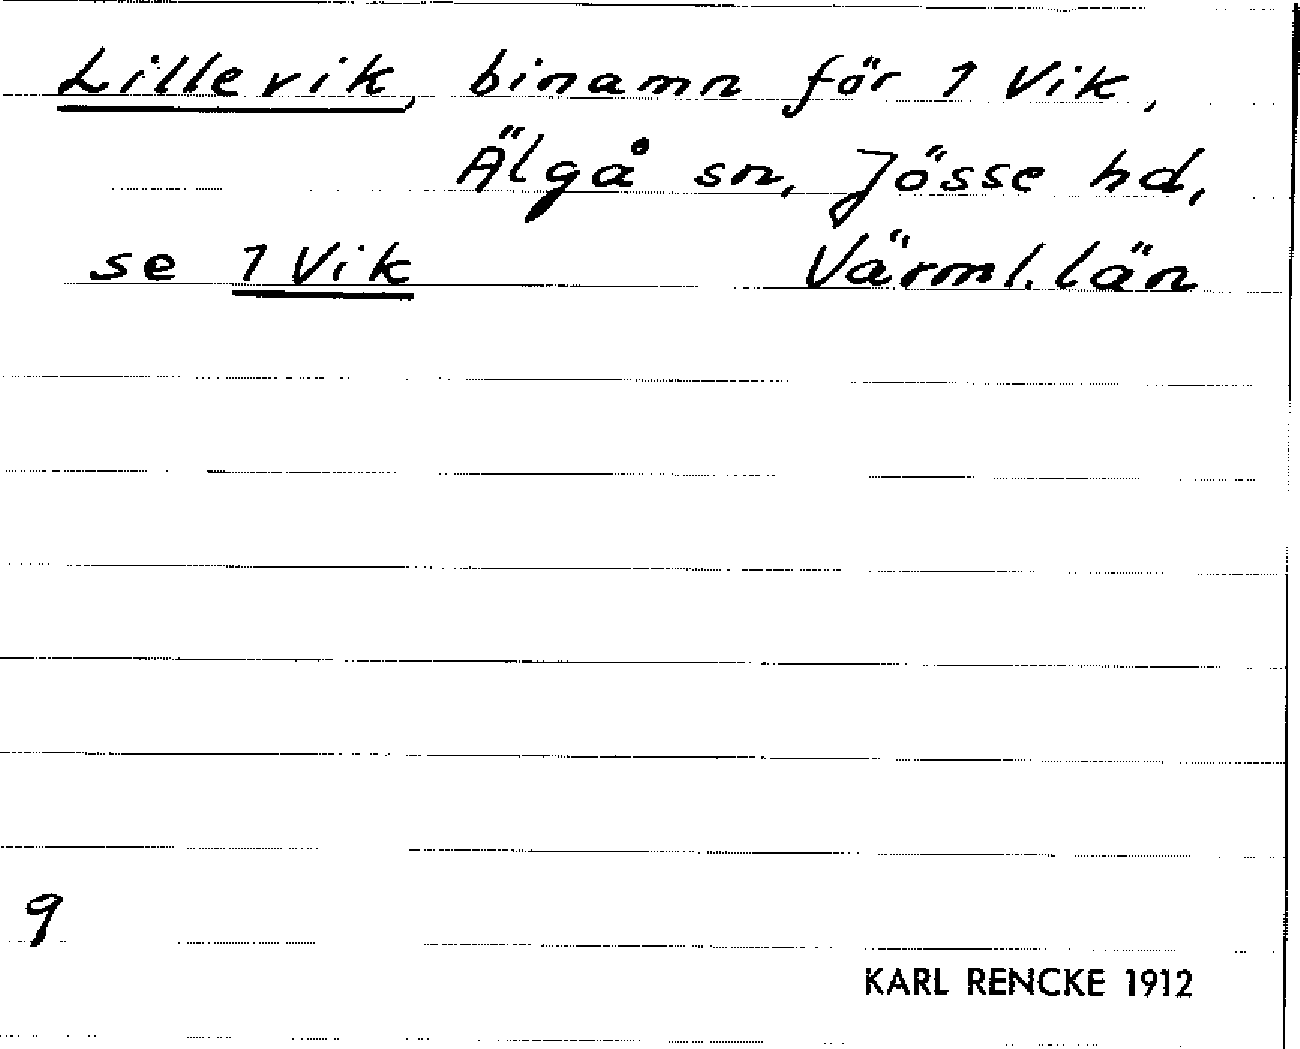 Lillevik, binamn för 1 Vik,
Älgå sn, Jösse hd,
se 1 Vik Värml. län
9
KARL RENCKE 1912